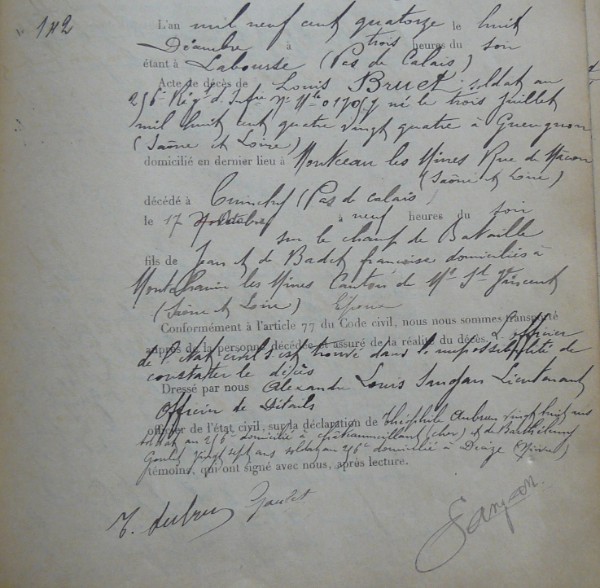 142
L'an mil neuf cent quatorze le huit
Décembre à trois heures du soir
étant à Labourse (Pas de Calais)
Acte de décès de Louis Bruet soldat au
256e Régt d'Infie né le trois juillet
mil huit cent quatre vingt quatre à Gueugnon
(Saône et Loire)
domicilié en dernier lieu à Montceau les Mines Rue de Mâcon
(Saône et Loire)
décédé à (Pas de Calais)
le 17 à neuf heures du soir
sur le champ de Bataille
fils de Jean et de Badet françoise domiciliés à
les Mines Canton de Mt St Vincent
(Saône et Loire)
Conformément à l'article 77 du Code civil, nous nous sommes transporté
auprès de la personne décédée et assuré de la réalité du décès. L'officier
de l'Etat civil s'est trouvé dans l'impossibilité de
constater le décès
Dressé par nous Alexandre Louis Lieutenant
Officier de Détails
officier de l'état civil, sur la déclaration de Théophile Aubrun vingt huit ans
soldat au 256e domicilié à châteaumeillant (cher) et de Barthélemy
Goulet vingt sept ans soldat au 256e domicilié à (Nièvre)
témoins, qui ont signé avec nous, après lecture.
T. Aubrun Goulet